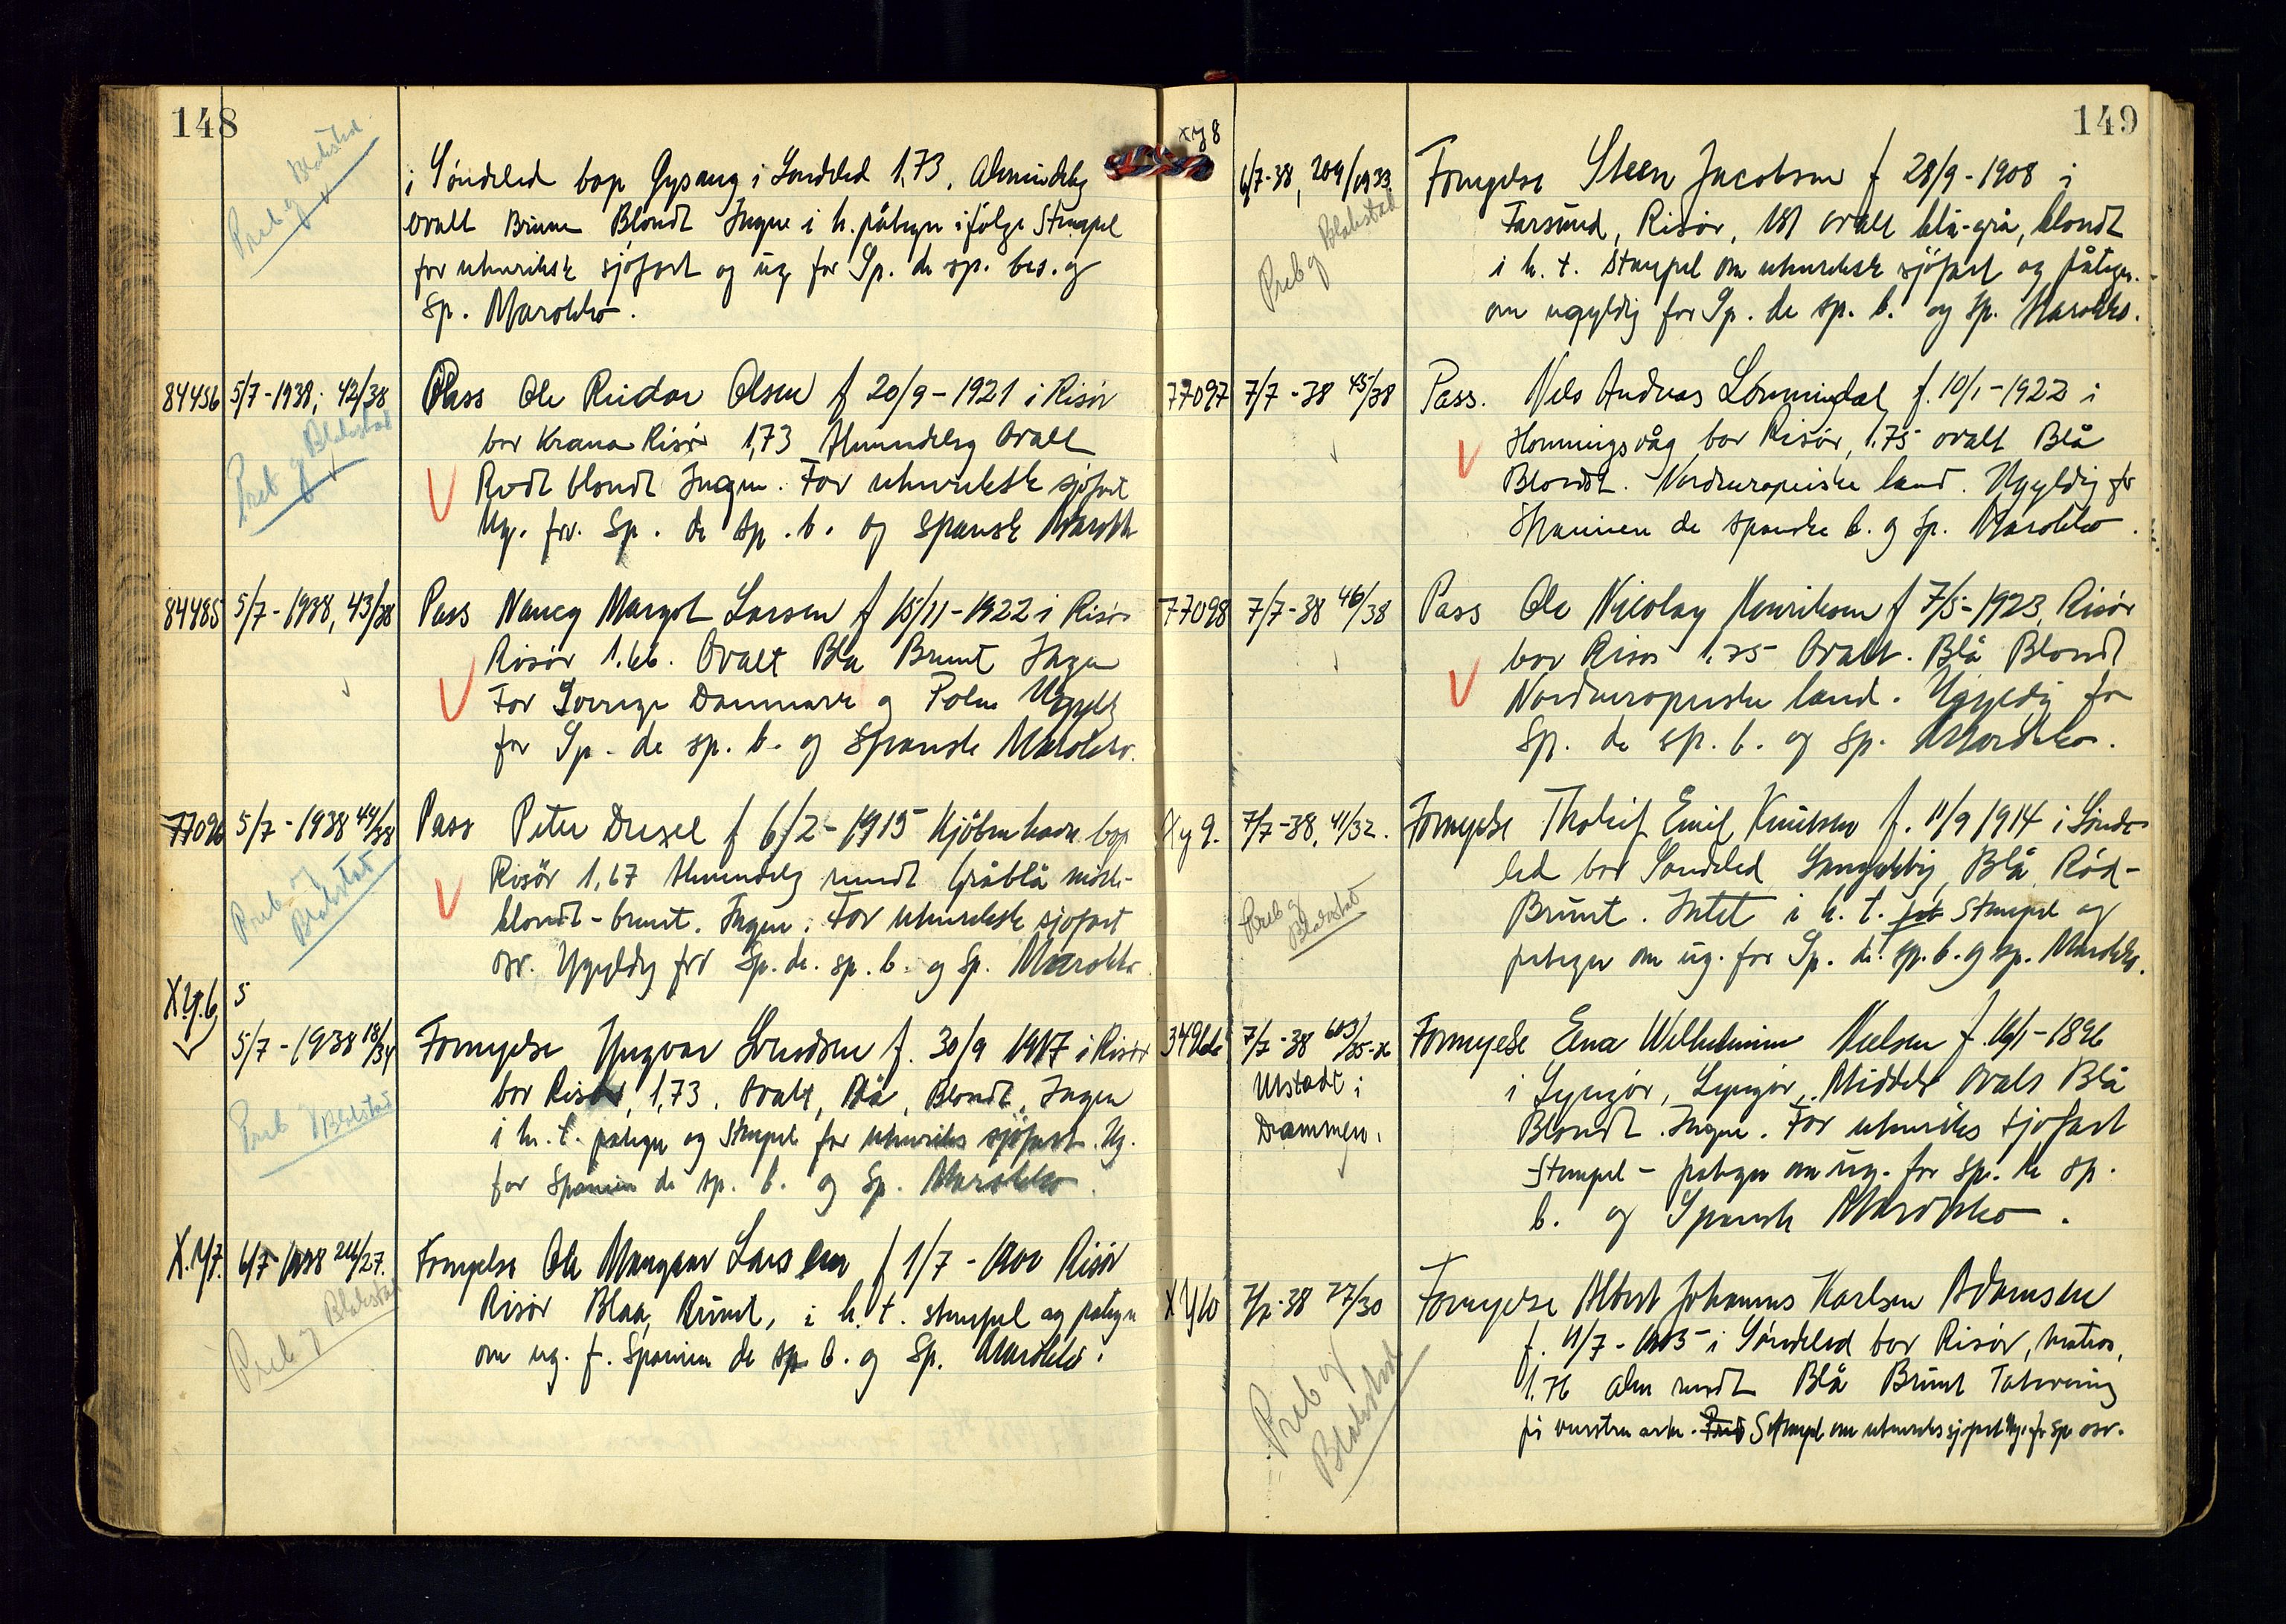 148
Preb og Blakstad
i Søndeled bop Gysang i Søndeled 1,73. Almindelig
ovalt Brune Blondt Ingen i h. påtegn ifølge Stempel
for utenriksk sjøfart og ug for Sp. de sp. bes. og
Sp. Marokko.
84456 5/7-1938; 42/38 Pass Ole Reidar Olsen f 20/9-1921 i Risør
Preb og Blakstad
bor Krana Risør 1,73 Almindelig Ovalt
Rødt blondt Ingen. For utenriksk sjøfart
Ug. for. Sp. de sp. b. og Spansk
84485 5/7-1938, 43/38 Pass Nancy Margot Larsen f 15/11-1922 i Risør
Risør 1.66. Ovalt Blå Brunt Ingen
For Sverige Danmark og Polen
for Sp. de sp. b. og Spansk Marokko.
77096 5/7-1938 44/38 Pass Peter f 6/2-1915 Kjøbenhavn bop
Preb og Blakstad
Risør 1,67 Almindelig rundt Gråblå
blondt-brunt. Ingen. For utenriksk sjøfart
osv. Ugyldig for Sp. de. sp. b. og Sp. Marokko
X.Y.6 5
5/7-1938 18/34 Fornyelse Yngvar f. 30/9 1917 i Risør
Preb og Blakstad
bor Risør, 1,73. Ovalt, Blå, Blondt, Ingen
i h. t. påtegn og Stempel for utenriks sjøfart. Ug.
for Spanien de sp. b. og Sp. Marokko.
X.Y7. 6/7-1938 Fornyelse Ole Larsen f 1/7-1900 Risør
Preb og Blakstad
Risør Blaa, Brunt, i h. t. stempel og påtegn
om ug. f. Spanien de sp b. og Sp. Marokko.
149
xy8
6/7-38, 204/1933 Fornyelse Steen Jacobsen f 28/9-1908 i
Preb og Blakstad
Farsund, Risør, 181 ovalt blå-grå, blondt
i h. t. Stempel om utenriksk sjøfart og påtegn.
om ugyldig for Sp. de sp. b. og sp. Marokko.
77097 7/7-38 45/38 Pass. Nels Andreas f. 10/1-1923 i
Honningsvåg bor Risør, 1.75 ovalt Blå
Blondt. Nordeuropeiske land. Ugyldig for
Spanien de spanske b. og Sp. Marokko.
77098 7/7-38 46/38 Pass Ole Nicolay Henriksen f 7/5-1923, Risør
bor Risør 1.75 Ovalt. Blå Blondt
Nordeuropeiske land. Ugyldig for
Sp. de sp. b. og Sp. Marokko.
Xy 9. 7/7-38, 41/32. Fornyelse Tholeif Emil Knutsen f. 11/9 1914 i Sønde-
Preb og Blakstad
led bor Søndeled Blå, Rød-
Brunt. Intet i h. t. Stempel og
påtegn om ug. for Sp. de. sp. b. og sp. Marokko.
7/7-38 Fornyelse Elna Wilhelmine Nielsen f. 16/1-1896
Utstedt i
Drammen.
i Lyngør, Lyngør, Middels Ovalt Blå
Blondt. Ingen. For utenriks sjøfart
Stempel - påtegn om ug. for Sp. de sp.
b. og Spansk Marokko.
X Y10 7/7-38 77/30 Fornyelse Albert Johannes Karlsen Adamsen
Preb og Blakstad
f. 11/7-1903 i Søndeled bor Risør, matros,
1.76 alm rundt Blå Brunt Tatovering
på venstre arm. Stempel om utenriks sjøfart Ug. for Sp osv.